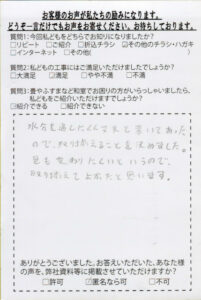 お客様のお声が私たちの励みになります。
どうぞ一言だけでもお声をお寄せください。お待ちしております。
質問1:今回私どもをどちらでお知りになりましたか?
□リピート □ご紹介 □折込チラシ ☑その他のチラシ・ハガキ
□インターネット □その他( )
質問2:私どもの工事にはご満足いただけましたでしょうか?
□大満足 ☑満足 □やや不満 □不満
質問3:畳やふすまなど和室でお困りの方がいらっしゃいましたら、
私どもをご紹介いただけますでしょうか?
☑紹介できる □紹介できない
水分を通しにくくて丈と書いてあった
ので、取り替えることを決めました。
色も変わりにくいというので、
取り替えて よかったと思います。
ありがとうございました。お答えいただいた、あなた様
の声を、弊社資料等に掲載させていただけますか?
□許可 ☑匿名なら可 □不可